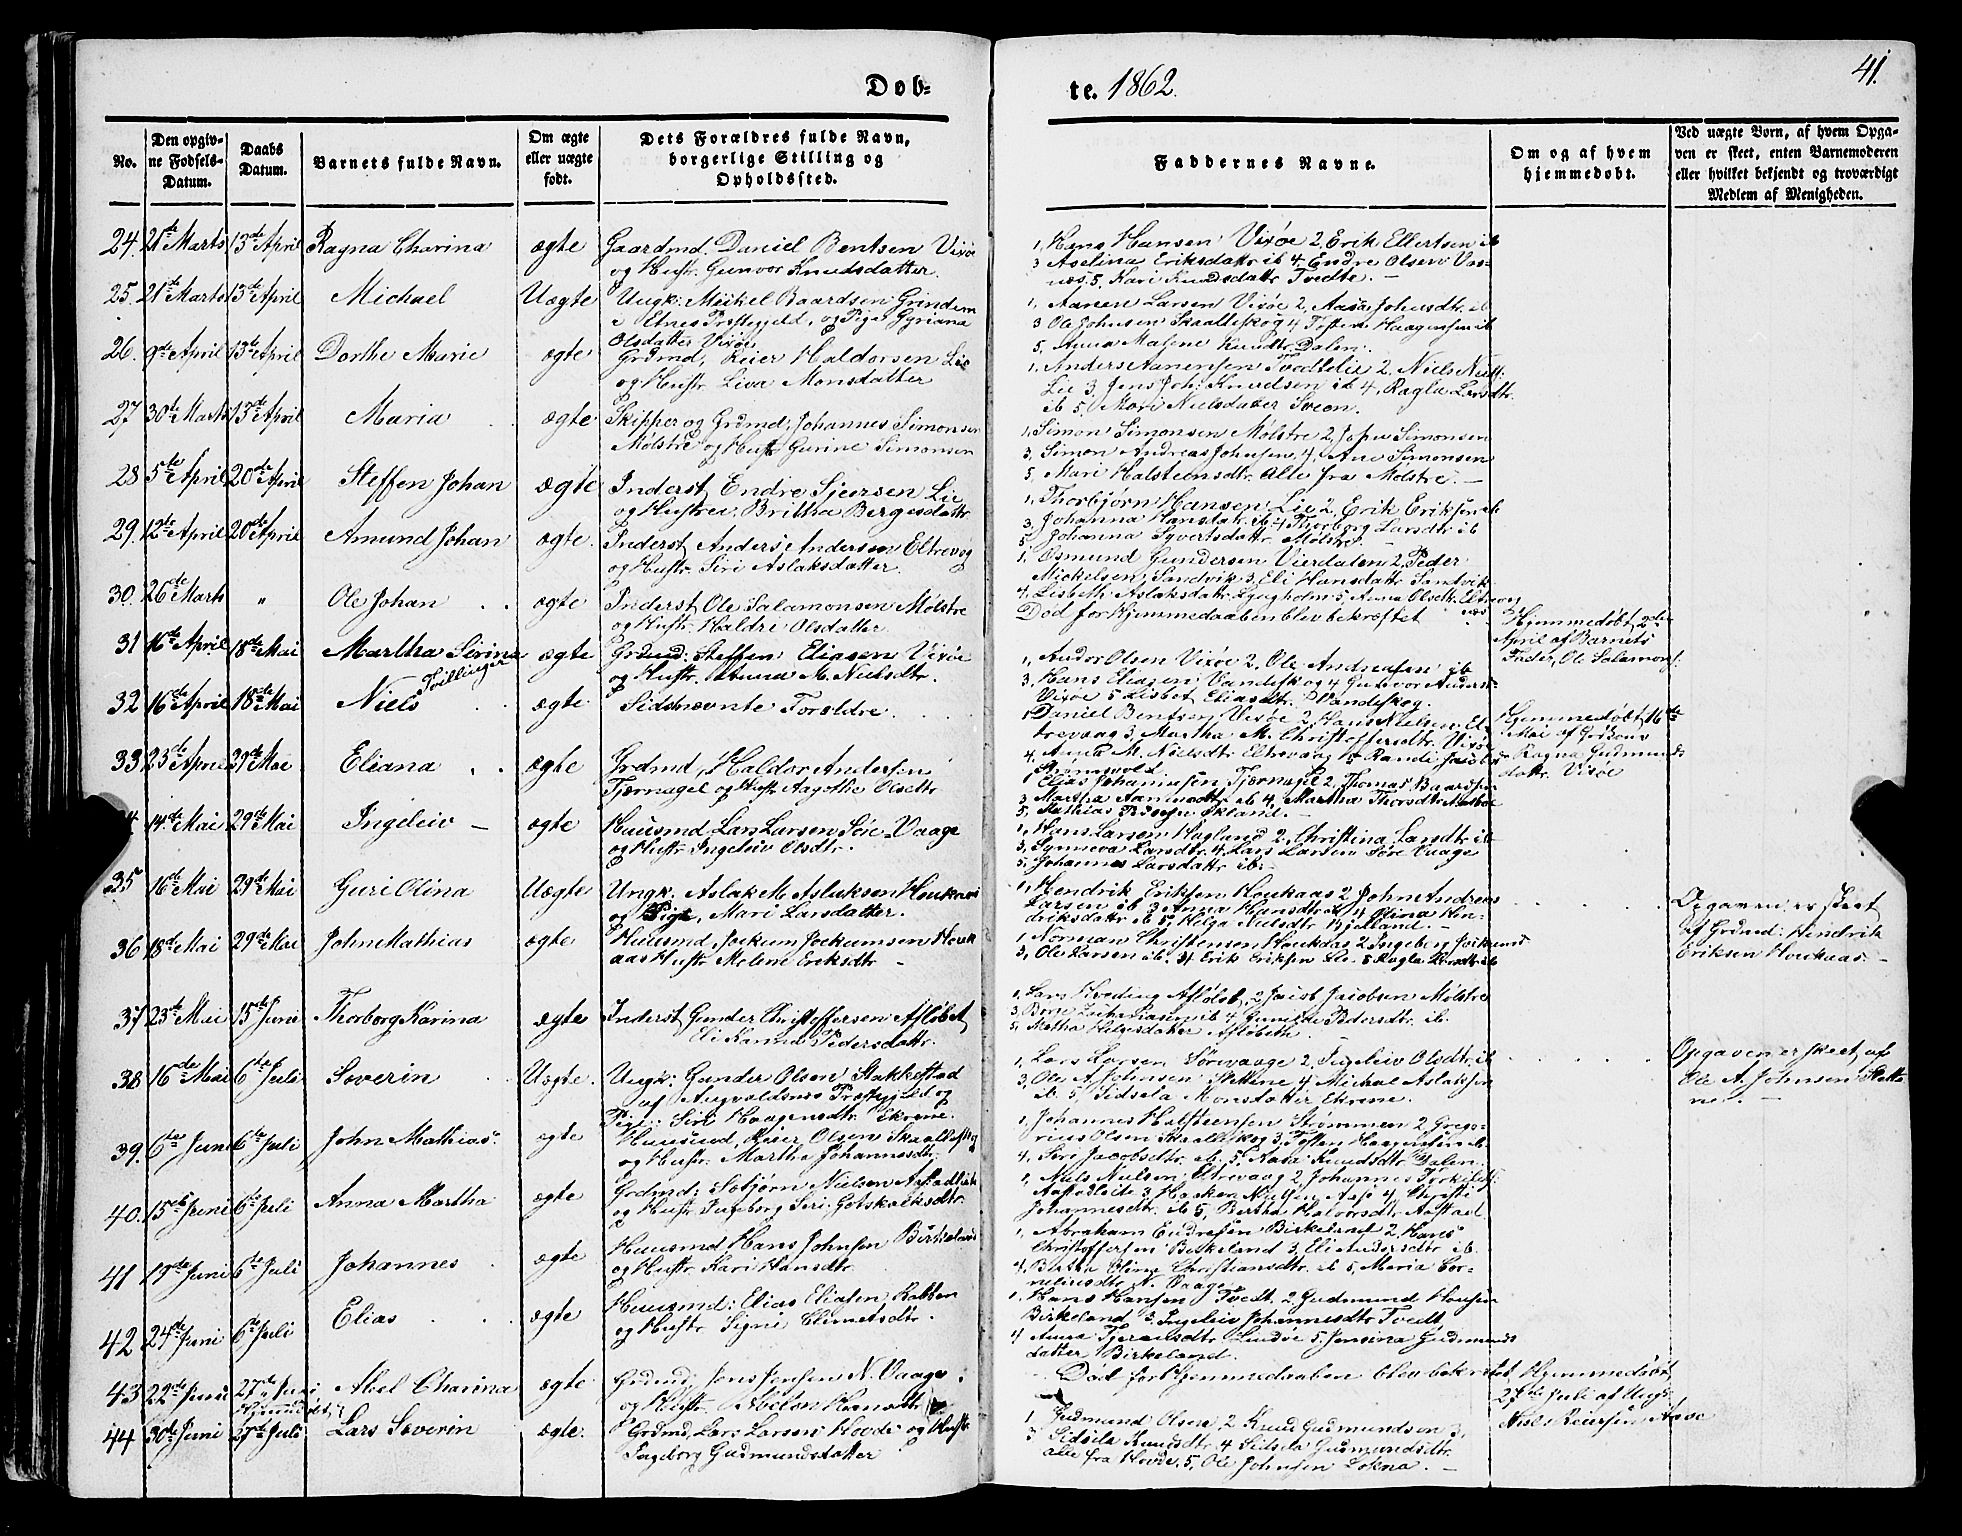 41
Døb-
te. 1862.
No.
Den opgiv-
ne Fødsels-
Datum.
Daabs
Datum.
Barnets fulde Navn.
Om ægte
eller uægte
født.
Dets Forældres fulde Navn,
borgerlige Stilling og
Opholdssted.
Faddernes Navne.
Om og af hvem
hjemmedøbt.
Ved uægte Børn, af hvem Opga-
ven er skeet, enten Barnemoderen
eller hvilket bekjendt og troværdigt
Medlem af Menigheden.
24. 21de Marts 13de April Ragna Charina ægte Gaardmd. Daniel Bentsen Vixøe
og Hustr. Gunvor Knudsdatter.
1, Hans Hansen Vixøe 2, Erik Ellertsen ib
3 Aselina Eriksdattr ib 4, Endre Olsen Vas-
næs 5, Kari Knudsdattr Tvedte.
25. 21de Marts 13de April Michael Uægte Ungk: Mikkel Baardsen Grindem
i Etnes Præstegjeld, og Pige Gyriana
Olsdatter Vixøe
1, Aanen Larsen Vixøe 2, Aasa Johnsdtr. ib
3 Ole Johnsen Skaalleskog 4 Tosten Haagensen ib
5, Anna Malene Knudtr. Dalen.
26. 9de April 13de April Dorthe Marie ægte Grdmd, Reier Haldorsen Lie
og Hustr. Liva Monsdatter
1, Anders Aanensen Tvedtelie 2, Niels Niels.
Lie 3, Jens Joh. Knudsen ib 4, Ragla Larsdtr.
ib 5, Mari Nielsdatter Sveen.
27 30de Marts 13de April Maria ægte Skipper og Grdmd, Johannes Simonsen
Mølstre og Hustr Gurine Simonsen
1, Simon Simonsen Mølstre 2, John Simonsen
3, Simon Andreas Johnsen, 4, Ane Simonsen
5, Mari Halsteensdtr. Alle fra Mølstre.
28 5te April 20de April Steffen Johan ægte Inderst Endre Sjursen Lie
og Hustrue Britha Bergesdattr
1, Thorbjørn Hansen Lie 2, Erik Eriksen ib
3, Johanna Hansdatr. ib 4 Thorborg Larsdtr ib
5 Johanna Syvertsdattr. Mølstre.
29. 12te April 20de April Amund Johan ægte. Inderst Anders Andersen Eltrevog
og Hustr. Siri Aslaksdatter.
1, Osmund Gundersen Vierdalen 2, Peder
Mickelsen Sandvik 3, Eli Hansdattr Sandvik
4. Lisbeth Aslaksdatr. Lyngholm 5, Anna Olsdtr. Eltrevog
30. 26de Marts „ Ole Johan ægte Inderst Ole Salamonsen Mølstre
og Hustr. Haldri Olsdatter
Død før Hjemmedaaben blev bekræftet
Hjemmedøbt 2den
April af Barnets
Fader, Ole Salamons.
31 16de April 18de Mai Martha Serina ægte Grdmd: Steffen Eliasen Vixøe
og Hustr. Anna M. Nielsdtr.
Tvillinger
1, Anders Olsen Vixøe 2, Ole Andreasen ib
3, Hans Eliasen Vandeskog 4 Gunvor Anders-
Vixøe 5 Lisbet Eliasdtr. Vandeskog.
32 16de April 18de Mai Niels ægte Sidstnævnte Forældre.
1 Daniel Bentsen Vixøe 2, Hans Nielsen El-
trevaag 3, Martha M. Christoffersdtr. Vixøe
4, Anna M. Nielsdtr Eltrevaag 5 Randi Jacobs-
Hjemmedøbt 16de
Mai af
Ragna Gudmunds
dattr. Vixøe
33 23de April 29de Mai Eliana ægte Grdmd, Haldor Andersen
Tjernagel og Hustr Aagothe Olsdtr
1 Elias Johannesen Tjernagel 2, Thomas Baardsen
3 Martha Aanensdtr. ib 4, Martha Thorsdtr.
5, Mathias Økland.
34 14de Mai 29de Mai Ingeleiv ægte Huusmd Lars Larsen Søre-Vaage
og Hustr Ingeleiv Olsdtr.
1, Hans Larsen Hagland 2, Christina Larsdtr ib
3, Synneva Larsdtr. 4, Lars Larsen Søre Vaage
5, Johannes Larsdattr ib.
35 16de Mai 29de Mai Guri Olina Uægte Ungk. Aslak M. Aslaksen Houkaas
og Pige, Mari Larsdatter.
1, Hendrik Eriksen Houkaas 2 John Andreas
Larsen ib 3 Anna Hansdtr. ib 4 Olina Hen-
driksdattr ib 5, Helga Nielsdtr Kjelland.
Opgaven er skeet
af Grdmd: Hendrik
Eriksen Houkaas.
36 18de Mai 29de Mai John Mathias ægte Huusmd, Jockum Jockumsen Houk
aas Hustr Melene Eriksdtr
1, Norman Christensen Houkaas 2 Ingeborg Jockumsd
3, Ole Larsen ib. 4 Erik Eriksen Lie 5 Ragla Larsdtr ib
37 23de Mai 15de Juni Thorborg Karina ægte Inderst Gunder Christoffersen Afløbet
Eli Karina Pedersdattr.
1, Lars Afløbet, 2 Jacob Jacobsen Mølstre
3, ib 4 Gunilda Pedersdtr. ib.
5, Martha Helgesdatter Afløbet
38 16de Mai 6te Juli Severin Uægte. Ungk: Gunder Olsen Stakkestad
af Augvaldsnes Præstegjeld og
Pige: Siri Haagensdtr. Ekrene.
1, Lars Larsen Sørevaage 2, Ingeleiv Olsdtr ib
3, Ole A. Johnsen Slettene 4 Michal Aslaksen
ib. 5, Sidsela Monsdatter Ekrene.
Opgaven er skeet af
Ole A. Johnsen Slette
ne.
39. 6te Juni 6te Juli John Mathias. ægte Huusmd, Reier Olsen Skaalleskog
og Hustr. Martha Johannesdtr.
1, Johannes Halsteensen Strømmen 2, Grego-
rius Olsen Skalleskog 3, Tosten Haagensen ib
4, Siri Jacobsdtr. ib. 5, Aasa Knudsdtr Dalen.
40. 15de Juni 6te Juli Anna Martha ægte Grdmd: Asbjørn Nielsen Aastadlide
og Hustr Ingeborg Seri. Gotskalksdtr.
1, Niels Nielsen Eltrevaag 2 Johannes Torkilds.
Aastadleite 3, Haaken Nielsen 4,
Johannesdtr. ib 5, Bertha Halvorsdtr Aastad.
41 19de Juni 6te Juli Johannes ægte Huusmd Hans Johnsen Birkeland
og Hustr Kari Hansdtr.
1, Abraham Endresen Birkeland 2 Hans
Christoffersen Birkeland 3, Eli Andersdtr ib.
4, Berta Oline Christiansdtr. ib 5, Maria Cor-
neliusdtr N. Vaage.
42 24de Juni 6te Juli Elias ægte Huusmd: Elias Eliasen Rabben
og Hustr Signi Clemetsdtr.
1, Hans Hansen Tvedt. 2 Gudmund Hansen
Birkeland 3, Ingeleiv Johannesdtr Tvedt
4 Anna Tjeransdtr Lindøe 5, Jensina Gudmunds
datter Birkeland.
43 22de Juni 27de Juni Hjemmedøbt Abel Charina ægte Grdmd: Jens Jensen N. Vaage
og Hustr Abelon Hansdtr
Død før Hjemmedaaben blev bekræftet, Hjemmedøbt
27de Juli af Ungk
Niels Reiersen Aase
44 30de Juni 27de Juli Lars Severin ægte. Grdmd, Lars Larsen Hovde og Hustr
Ingeborg Gudmundsdatter
1 Gudmund Olsen 2 Knud Gudmundsen
3 Sidsela Knudsdtr 4 Sidsela Gudmundsdtr.
alle fra Hovde. 5, Ole Johnsen Lokna.